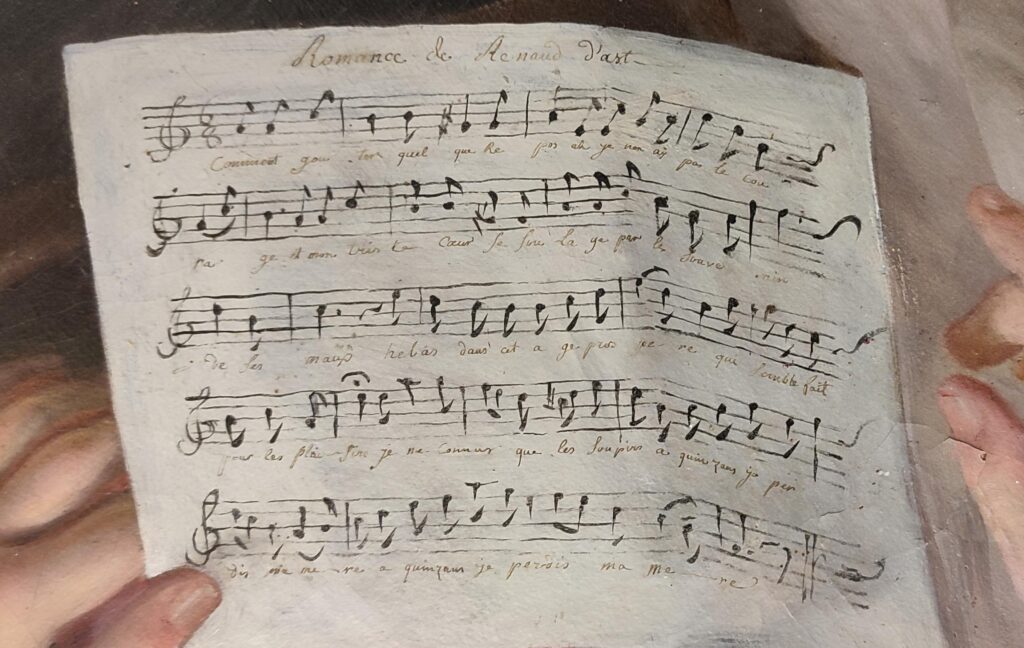 Romance de Renaud d'ast
Comment gou ter quel que Re pos ah je n'en ay pas le cou
ra ge et mon tris te Cœur se livre La ge par le souve nir
de ses maux helas dans cet a ge pros pe re qui semble fait
pour les plai sirs je ne Connus que les soupirs a quinzans ja per
dis ma me re a quinzans je perdis ma me re